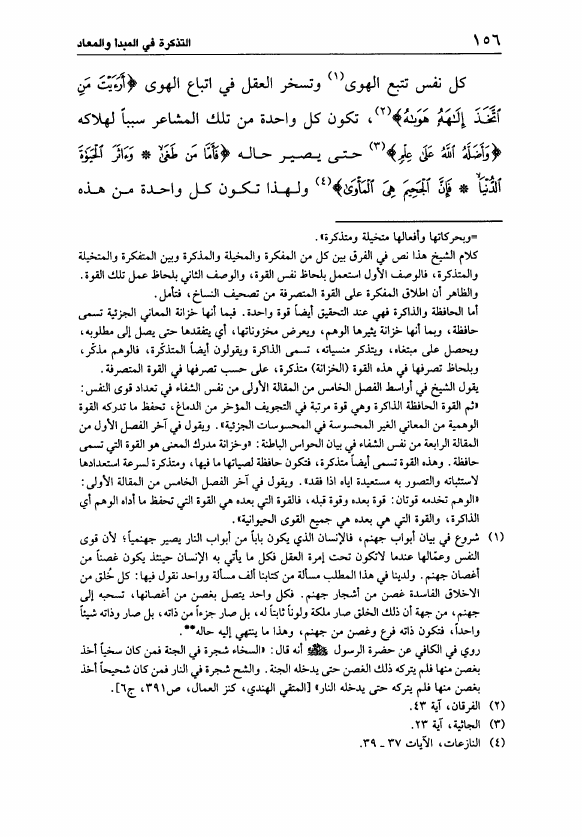 ١٥٦ التذكرة في المبدأ والمعاد
كل نفس تتبع الهوى(١) وتسخر العقل في اتباع الهوى ﴿أَرَءَيْتَ مَنِ
ٱتَّخَذَ إِلَٰهَهُۥ هَوَىٰهُ﴾(٢)، تكون كل واحدة من تلك المشاعر سبباً لهلاكه
﴿وَأَضَلَّهُ ٱللَّهُ عَلَىٰ عِلْمٍ﴾(٣) حتى يصير حاله ﴿فَأَمَّا مَن طَغَىٰ * وَءَاثَرَ ٱلْحَيَوٰةَ
ٱلدُّنْيَا * فَإِنَّ ٱلْجَحِيمَ هِيَ ٱلْمَأْوَىٰ﴾(٤) ولهذا تكون كل واحدة من هذه
=وبحركاتها وأفعالها متخيلة ومتذكرة».
كلام الشيخ هذا نص في الفرق بين كل من المفكرة والمخيلة والمذكرة وبين المتفكرة والمتخيلة
والمتذكرة، فالوصف الأول استعمل بلحاظ نفس القوة، والوصف الثاني بلحاظ عمل تلك القوة.
والظاهر أن اطلاق المفكرة على القوة المتصرفة من تصحيف النساخ، فتأمل.
أما الحافظة والذاكرة فهي عند التحقيق أيضاً قوة واحدة. فبما أنها خزانة المعاني الجزئية تسمى
حافظة، وبما أنها خزانة يثيرها الوهم، ويعرض مخزوناتها، أي يتفقدها حتى يصل إلى مطلوبه،
ويحصل على مبتغاه، ويتذكر منسياته، تسمى الذاكرة ويقولون أيضاً المتذكّرة، فالوهم مذكّر،
وبلحاظ تصرفها في هذه القوة (الخزانة) متذكرة، على حسب تصرفها في القوة المتصرفة.
يقول الشيخ في أواسط الفصل الخامس من المقالة الأولى من نفس الشفاء في تعداد قوى النفس:
«ثم القوة الحافظة الذاكرة وهي قوة مرتبة في التجويف المؤخر من الدماغ، تحفظ ما تدركه القوة
الوهمية من المعاني الغير المحسوسة في المحسوسات الجزئية». ويقول في آخر الفصل الأول من
المقالة الرابعة من نفس الشفاء في بيان الحواس الباطنة: «وخزانة مدرك المعنى هو القوة التي تسمى
حافظة. وهذه القوة تسمى أيضاً متذكرة، فتكون حافظة لصياتها ما فيها، ومتذكرة لسرعة استعدادها
لاستثباته والتصور به مستعيدة اياه اذا فقد». ويقول في آخر الفصل الخامس من المقالة الأولى:
«الوهم تخدمه قوتان: قوة بعده وقوة قبله، فالقوة التي بعده هي القوة التي تحفظ ما أداه الوهم أي
الذاكرة، والقوة التي هي بعده هي جميع القوى الحيوانية».
(١) شروع في بيان أبواب جهنم، فالإنسان الذي يكون باباً من أبواب النار يصير جهنمياً؛ لأن قوى
النفس وعمّالها عندما لاتكون تحت إمرة العقل فكل ما يأتي به الإنسان حينئذ يكون غصناً من
أغصان جهنم. ولدينا في هذا المطلب مسألة من كتابنا ألف مسألة وواحد نقول فيها: كل خُلق من
الاخلاق الفاسدة غصن من أشجار جهنم. فكل واحد يتصل بغصن من أغصانها، تسحبه إلى
جهنم، من جهة أن ذلك الخلق صار ملكة ولوناً ثابتاً له، بل صار جزءاً من ذاته، بل صار وذاته شيئاً
واحداً، فتكون ذاته فرع وغصن من جهنم، وهذا ما ينتهي إليه حاله**.
روي في الكافي عن حضرة الرسول ﷺ أنه قال: «السخاء شجرة في الجنة فمن كان سخياً أخذ
بغصن منها فلم يتركه ذلك الغصن حتى يدخله الجنة. والشح شجرة في النار فمن كان شحيحاً أخذ
بغصن منها فلم يتركه حتى يدخله النار» [المتقي الهندي، كنز العمال، ص٣٩١، ج٦].
(٢) الفرقان، آية ٤٣.
(٣) الجاثية، آية ٢٣.
(٤) النازعات، الآيات ٣٧ - ٣٩.